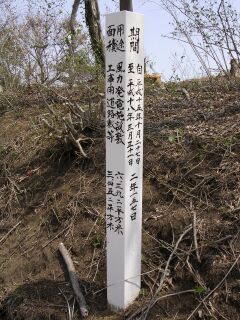 期間
自 平成十五年十月二十七日
至 平成十八年三月三十一日
二年一五七日
用途 風力発電施設敷
工事用道路敷等
面積
六.三九二平方米
三.四五二平方米